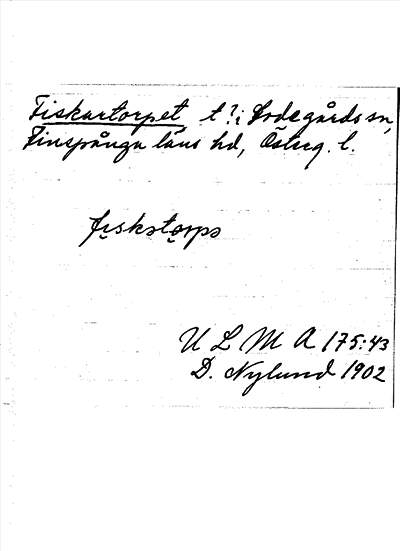 Fiskartorpet t? i Godegårds sn,
Finspånga läns hd, Österg. l.
fiskətorpə
U L M A 175:43
D. Nylund 1902